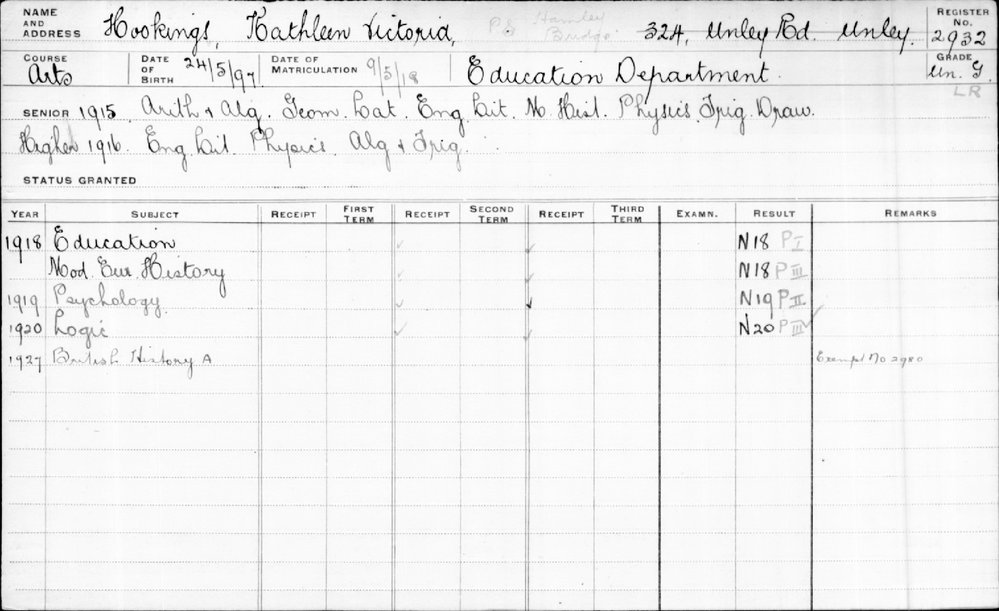 NAME AND ADDRESS Hookings, Kathleen Victoria, P.S. Hamley Bridge 324, Unley Rd. Unley. REGISTER No. 2932
COURSE Arts DATE OF BIRTH 24/5/97 DATE OF MATRICULATION 9/5/18 Education Department. GRADE Un. G.
LR
SENIOR 1915. Arith & Alg. Geom. Lat. Eng. Lit. M. Hist. Physics. Trig. Draw.
Higher 1916. Eng. Lit. Physics. Alg & Trig.
STATUS GRANTED
YEAR SUBJECT RECEIPT FIRST TERM RECEIPT SECOND TERM RECEIPT THIRD TERM EXAMN. RESULT REMARKS
1918 Education ✓ ✓ N18 P I
Mod. Eur. History ✓ ✓ N18 P III
1919 Psychology ✓ ✓ N19 P II
1920 Logic ✓ ✓ N20 P III ✓
1927 British History A Exempt No 2980